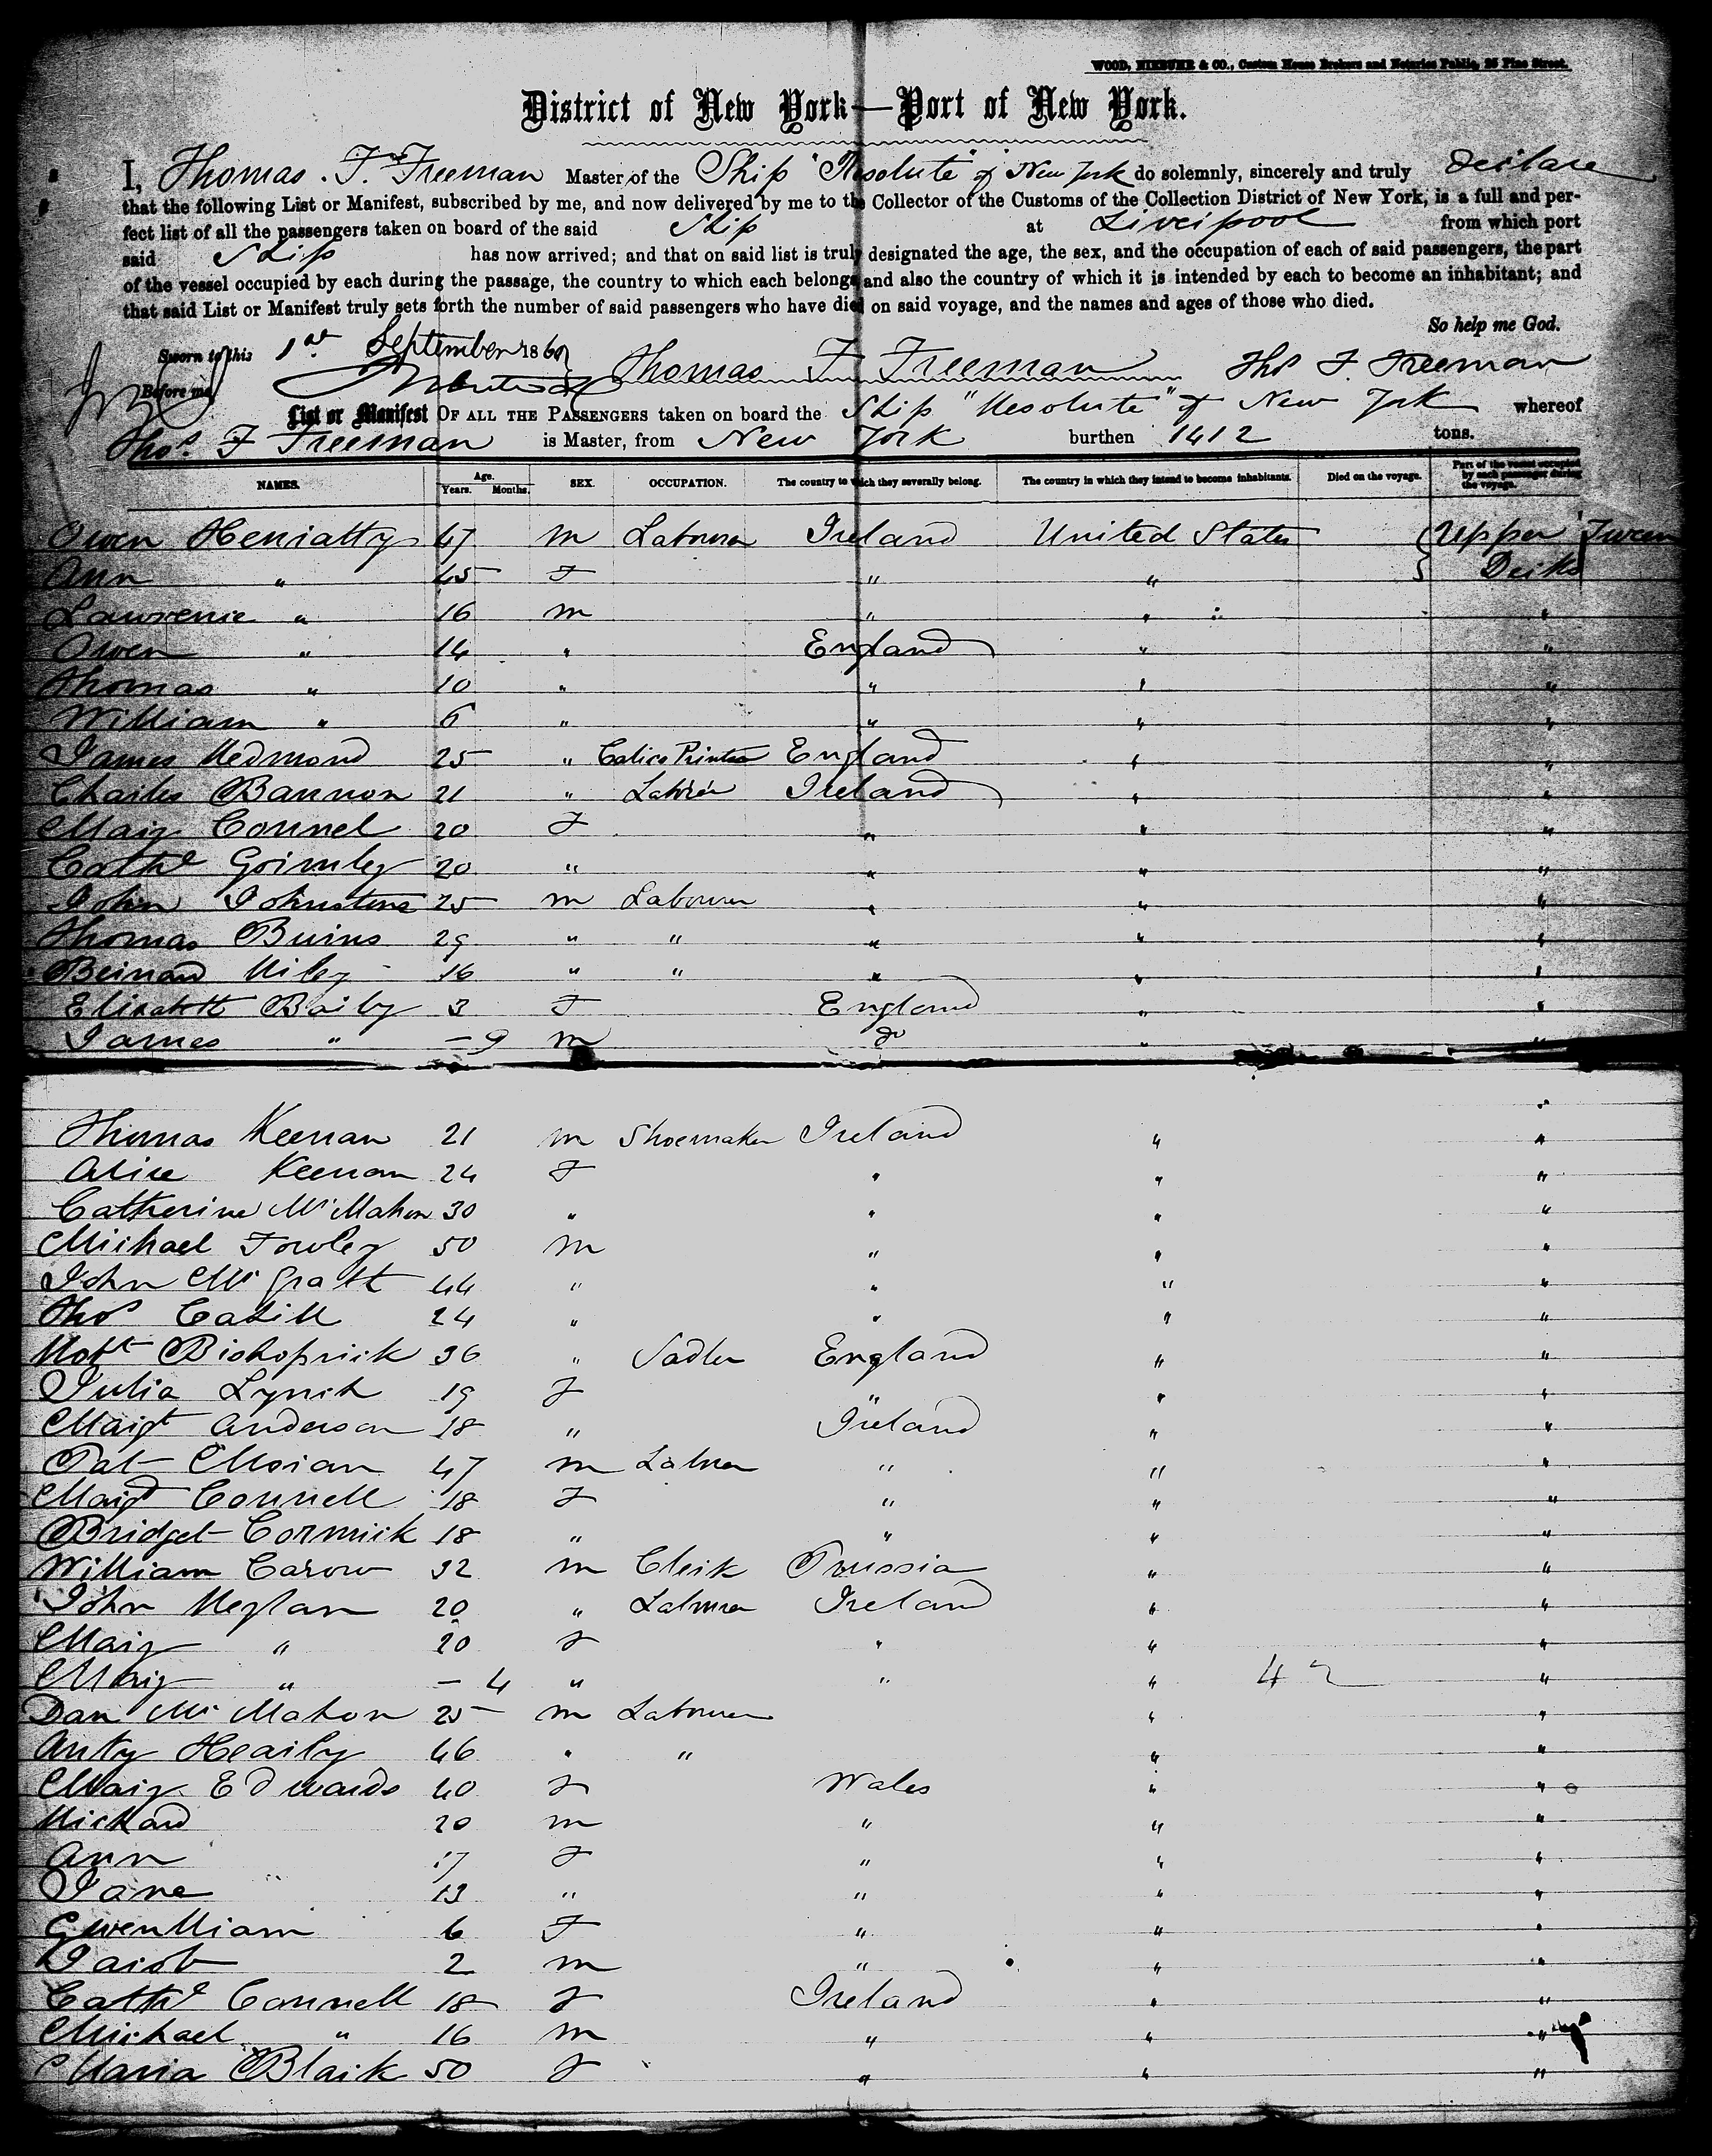 WOOD, NIEBUHR & CO., Custom House Brokers and Notaries Public, 25 Pine Street.
District of New York—Port of New York.
I, Thomas F. Freeman Master of the Ship "Resolute" of New York do solemnly, sincerely and truly declare
that the following List or Manifest, subscribed by me, and now delivered by me to the Collector of the Customs of the Collection District of New York, is a full and per-
fect list of all the passengers taken on board of the said Ship at Liverpool from which port
said Ship has now arrived; and that on said list is truly designated the age, the sex, and the occupation of each of said passengers, the part
of the vessel occupied by each during the passage, the country to which each belongs and also the country of which it is intended by each to become an inhabitant; and
that said List or Manifest truly sets forth the number of said passengers who have died on said voyage, and the names and ages of those who died.
So help me God.
Sworn to this 1st September 186 Thomas F Freeman Thos F. Freeman
Before me
List or Manifest OF ALL THE PASSENGERS taken on board the Ship "Resolute" of New York whereof
Thos. F Freeman is Master, from New York burthen 1412 tons.
NAMES. Age. Years. Months. SEX. OCCUPATION. The country to which they severally belong. The country in which they intend to become inhabitants. Died on the voyage. Part of the vessel occupied by each passenger during the voyage.
Owen 47 m Labourer Ireland United States Upper Tween
Ann " 45 F " " Decks
Lawrence " 16 m " " "
Owen " 14 " England " "
Thomas " 10 " " " "
William " 6 " " " "
James Redmond 25 " Calico Printer England " "
Charles Bannon 21 " Labrer Ireland " "
Mary Connel 20 F " " "
Cathe Grimley 20 " " " "
John Johnstone 25 m Labourer " " "
Thomas Burns 29 " " " " "
Bernard Riley 16 " " " " "
Elizabeth Baily 3 F England " "
James " - 9 m do " "
Thomas Keenan 21 m Shoemaker Ireland " "
Alice Keenan 24 F " " "
Catherine McMahon 30 " " " "
Michael Fowley 50 m " " "
John McGrath 44 " " " "
Thos Cahill 24 " " " "
Robt Bishoprick 36 " Sadler England " "
Julia Lynch 19 F " " "
Margt Anderson 18 " Ireland " "
Pat Moran 47 m Labrer " " "
Margt Connell 18 F " " "
Bridget Cormick 18 " " " "
William Carow 32 m Clerk Prussia " "
John Reglan 20 " Labourer Ireland " "
Mary " 20 F " " "
Mary " - 4 " " " 42 "
Dan McMahon 25 m Labourer " "
Anty Hearly 46 " " " "
Mary Edwards 40 F Wales " "
Richard 20 m " " "
Ann 17 F " " "
Jane 13 " " " "
Gwenlliam 6 F " " "
Jacob 2 m " " "
Cathe Connell 18 F Ireland " "
Michael " 16 m " " "
Maria Black 50 F " " "